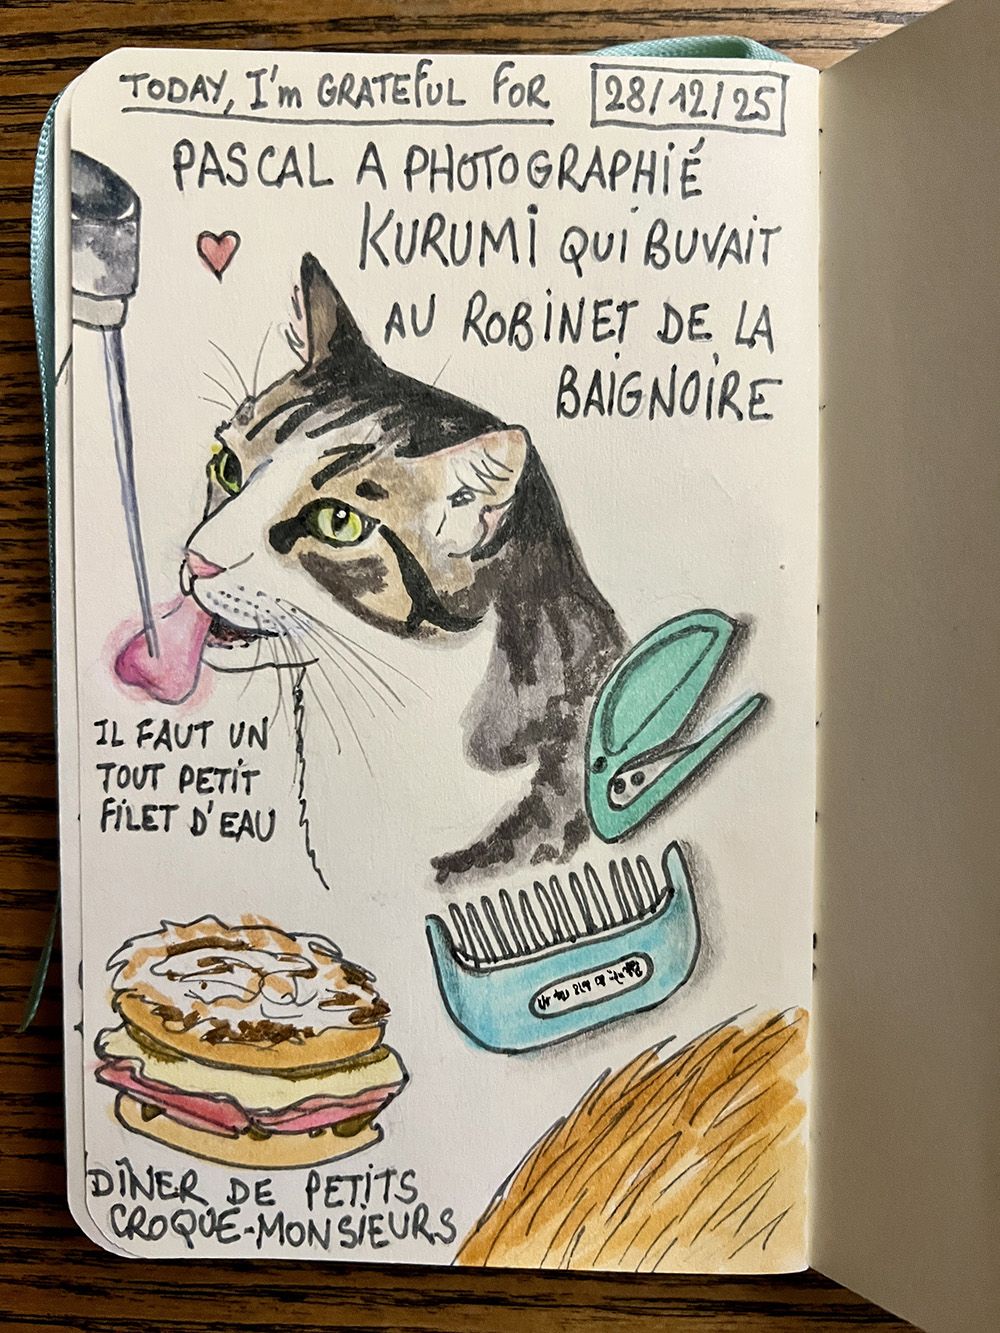 TODAY, I'm GRATEFUL FOR 28/12/25
PASCAL A PHOTOGRAPHIÉ
KURUMI QUI BUVAIT
AU ROBINET DE LA
BAIGNOIRE
IL FAUT UN
TOUT PETIT
FILET D'EAU
DÎNER DE PETITS
CROQUE-MONSIEURS